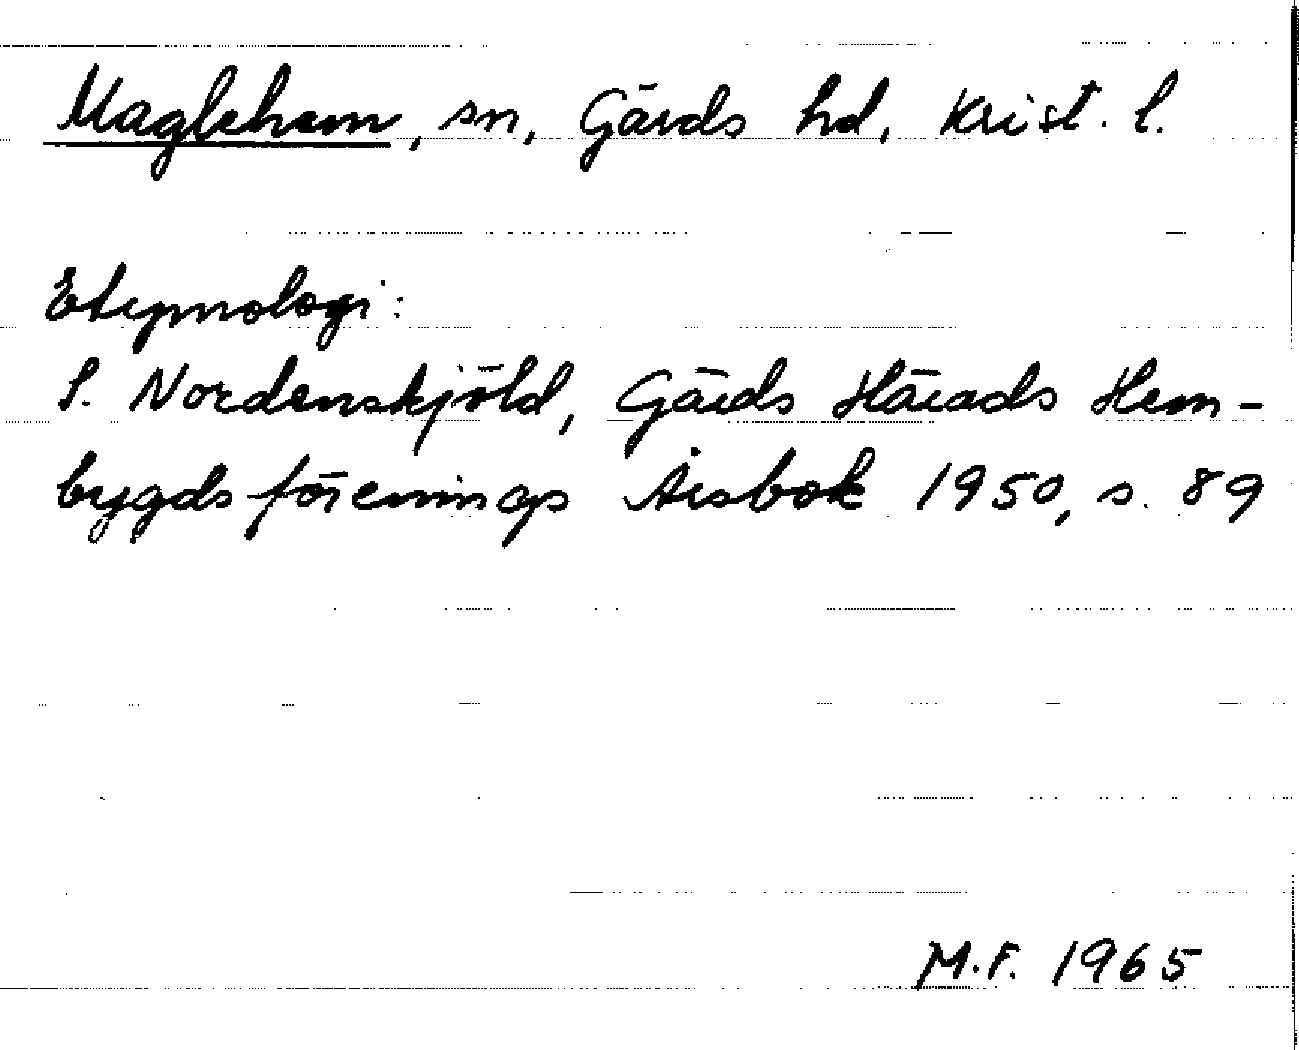 Maglehem, sn, Gärds hd, Krist. l.
Etymologi:
S. Nordenskjöld, Gärds Härads Hem-
bygdsförenings Årsbok 1950, s. 89
M.F. 1965